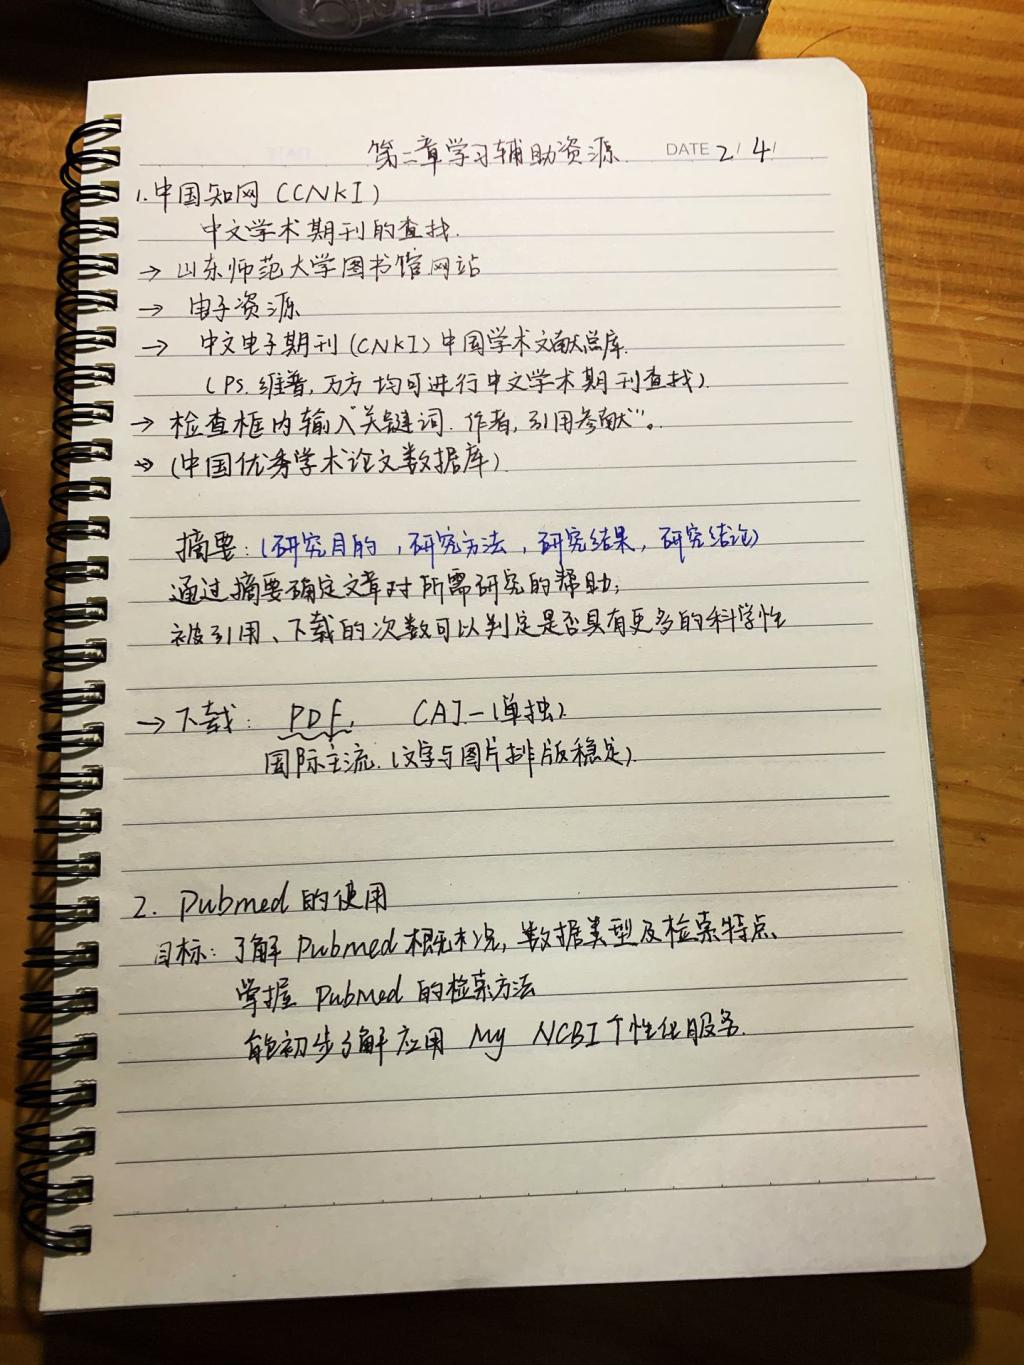 第二章学习辅助资源 DATE 2/4/
1.中国知网(CCNKI)
中文学术期刊的查找.
→ 山东师范大学图书馆网站
→ 电子资源
→ 中文电子期刊(CNKI)中国学术文献总库.
(PS.维普,万方均可进行中文学术期刊查找).
→ 检查框内输入"关键词.作者,引用参献"。
→ (中国优秀学术论文数据库).
摘要:(研究目的,研究方法,研究结果,研究结论)
通过摘要确定文章对所需研究的帮助;
被引用、下载的次数可以判定是否具有更多的科学性
→ 下载: PDF, CAJ-(单独).
国际主流.(文字与图片排版稳定).
2. Pubmed 的使用
目标:了解 Pubmed 概况,数据类型及检索特点、
掌握 Pubmed 的检索方法
能初步了解应用 My NCBI 个性化服务.